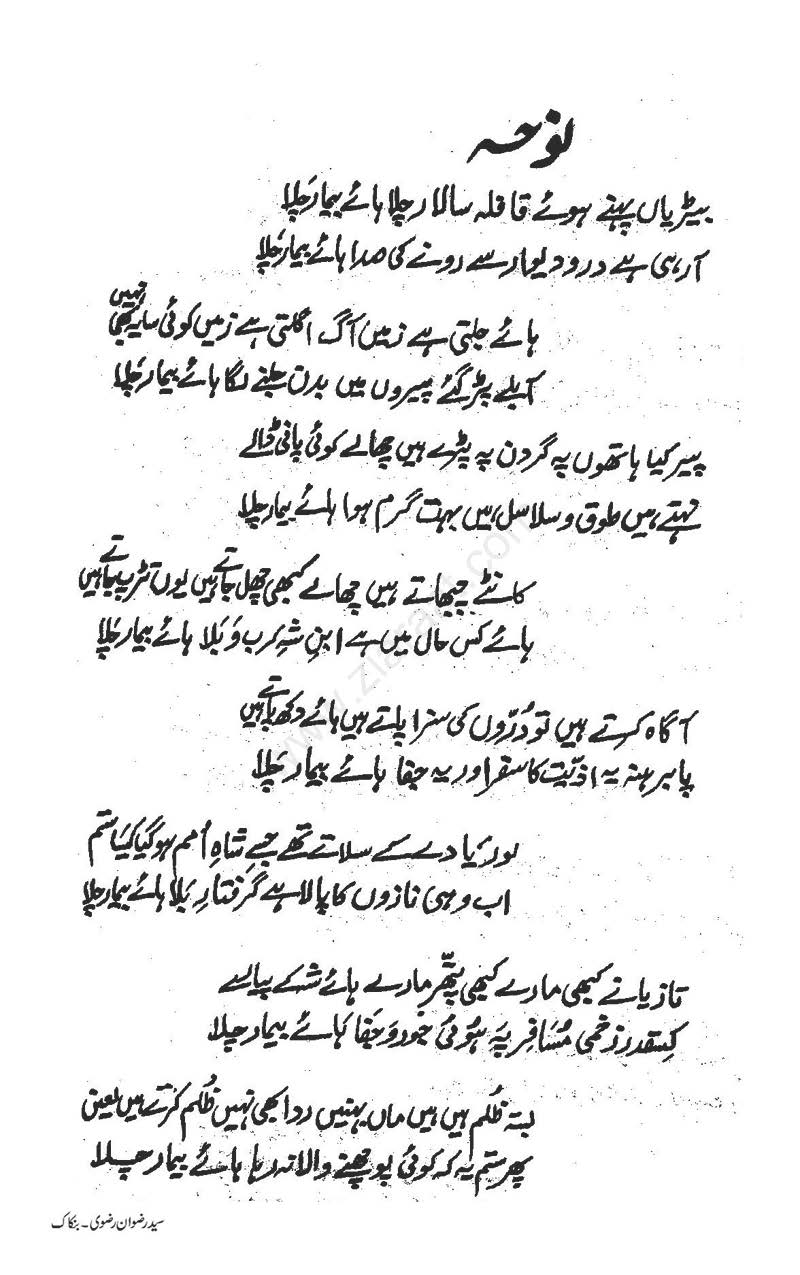 نوحہ
بیڑیاں پہنے ہوئے قافلہ سالار چلا ہائے بیمار چلا
آ رہی ہے در و دیوار سے رونے کی صدا ہائے بیمار چلا
ہائے جلتی ہے زمیں آگ اگلتی ہے زمیں کوئی سایہ بھی نہیں
آبلے پڑ گئے پیروں میں بدن جلنے لگا ہائے بیمار چلا
پیر کیا ہاتھوں پہ گردن پہ پڑے ہیں چھالے کوئی پانی ڈالے
تپتے ہیں طوق و سلاسل ہیں بہت گرم ہوا ہائے بیمار چلا
کانٹے چبھاتے ہیں چھالے کبھی چھل جاتے ہیں یوں تڑپ جاتے ہیں
ہائے کس حال میں ہے ابنِ شہِ کرب و بلا ہائے بیمار چلا
آگاہ کرتے ہیں تو دُرّوں کی سزا پاتے ہیں ہائے دکھ پاتے ہیں
پا برہنہ یہ اذیّت کا سفر اور یہ جفا ہائے بیمار چلا
لوریا دے کے سلاتے تھے جسے شاہِ اُمم ہو گیا کیسا ستم
اب وہی نازوں کا پالا ہے گرفتارِ بلا ہائے بیمار چلا
تازیانے کبھی مارے کبھی پتّھر مارے ہائے شہ کے پیارے
کسقدر زخمی مُسافر پہ ہوئی جور و جفا ہائے بیمار چلا
بستہ ظُلم ہیں ہیں ماں بہنیں ردا بھی نہیں ظُلم کرتے ہیں لعین
پھر ستم یہ کہ کوئی پوچھنے والا نہ رہا ہائے بیمار چلا
سید رضوان رضوی۔ بنکاک
www.ziaraat.com